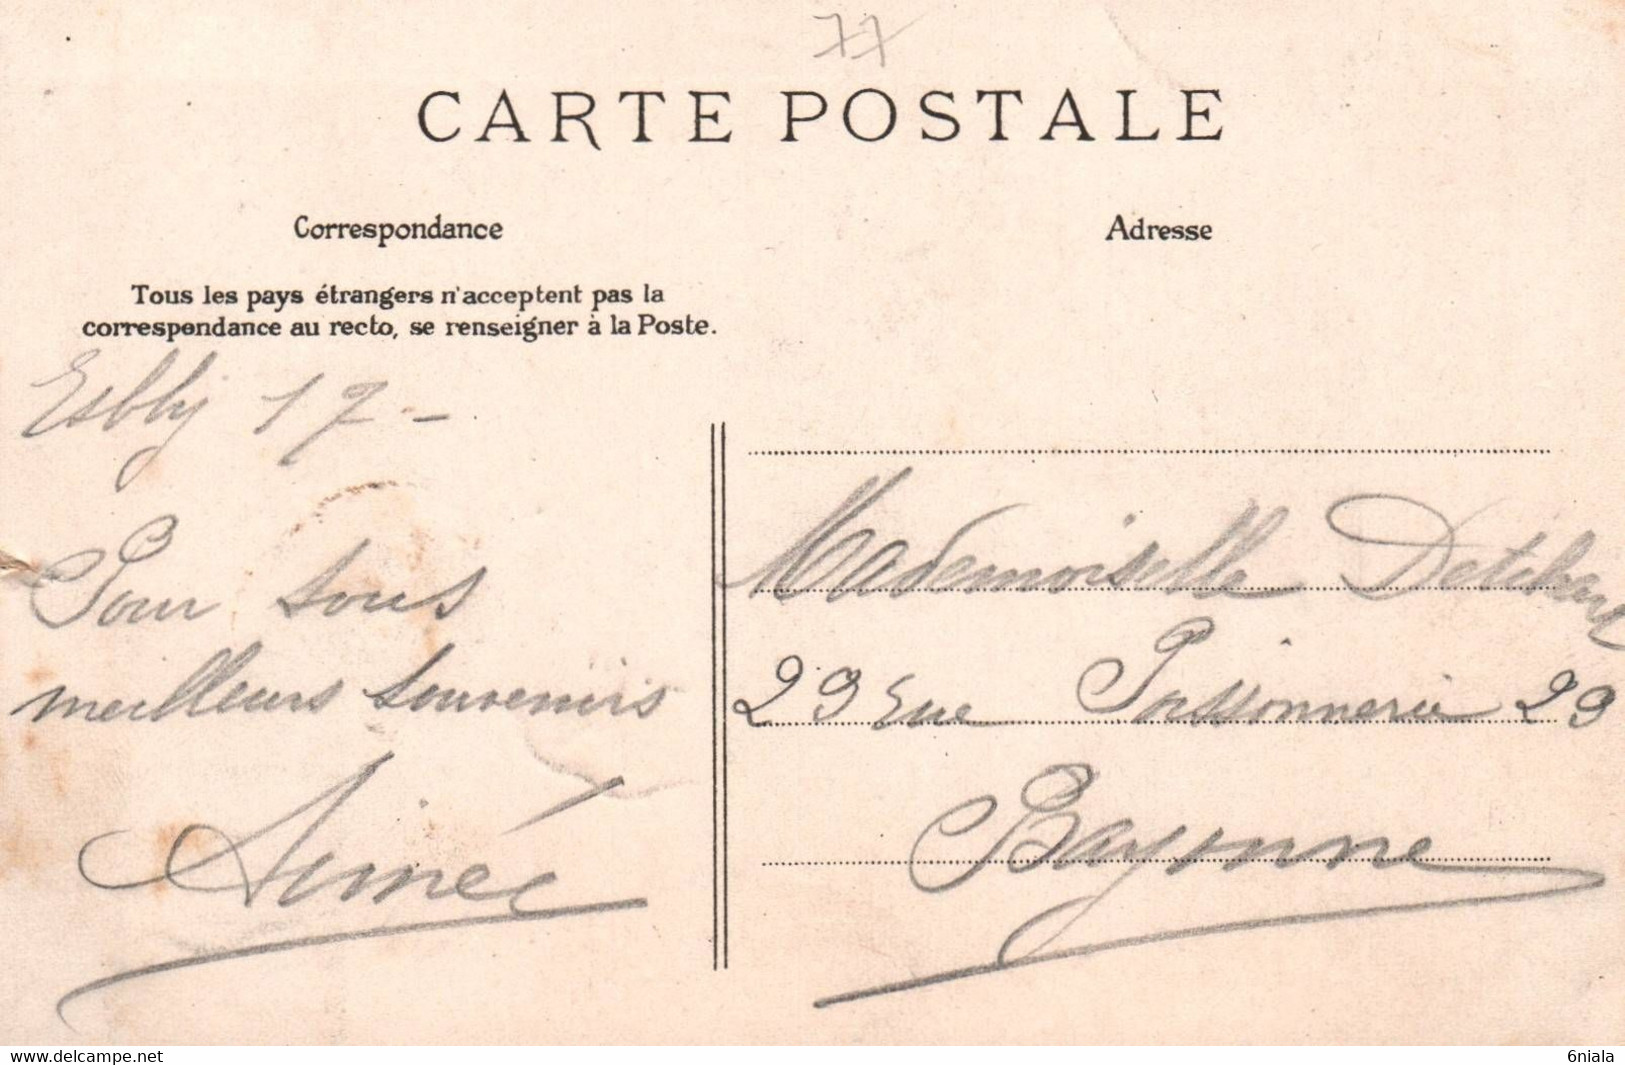 77
CARTE POSTALE
Correspondance
Adresse
Tous les pays étrangers n'acceptent pas la
correspondance au recto, se renseigner à la Poste.
Esbly 17 -
Pour tous
meilleurs souvenirs
Aimée
Mademoiselle
29 rue Poissonnerie 29
Bayonne
delcampe.net
6niala